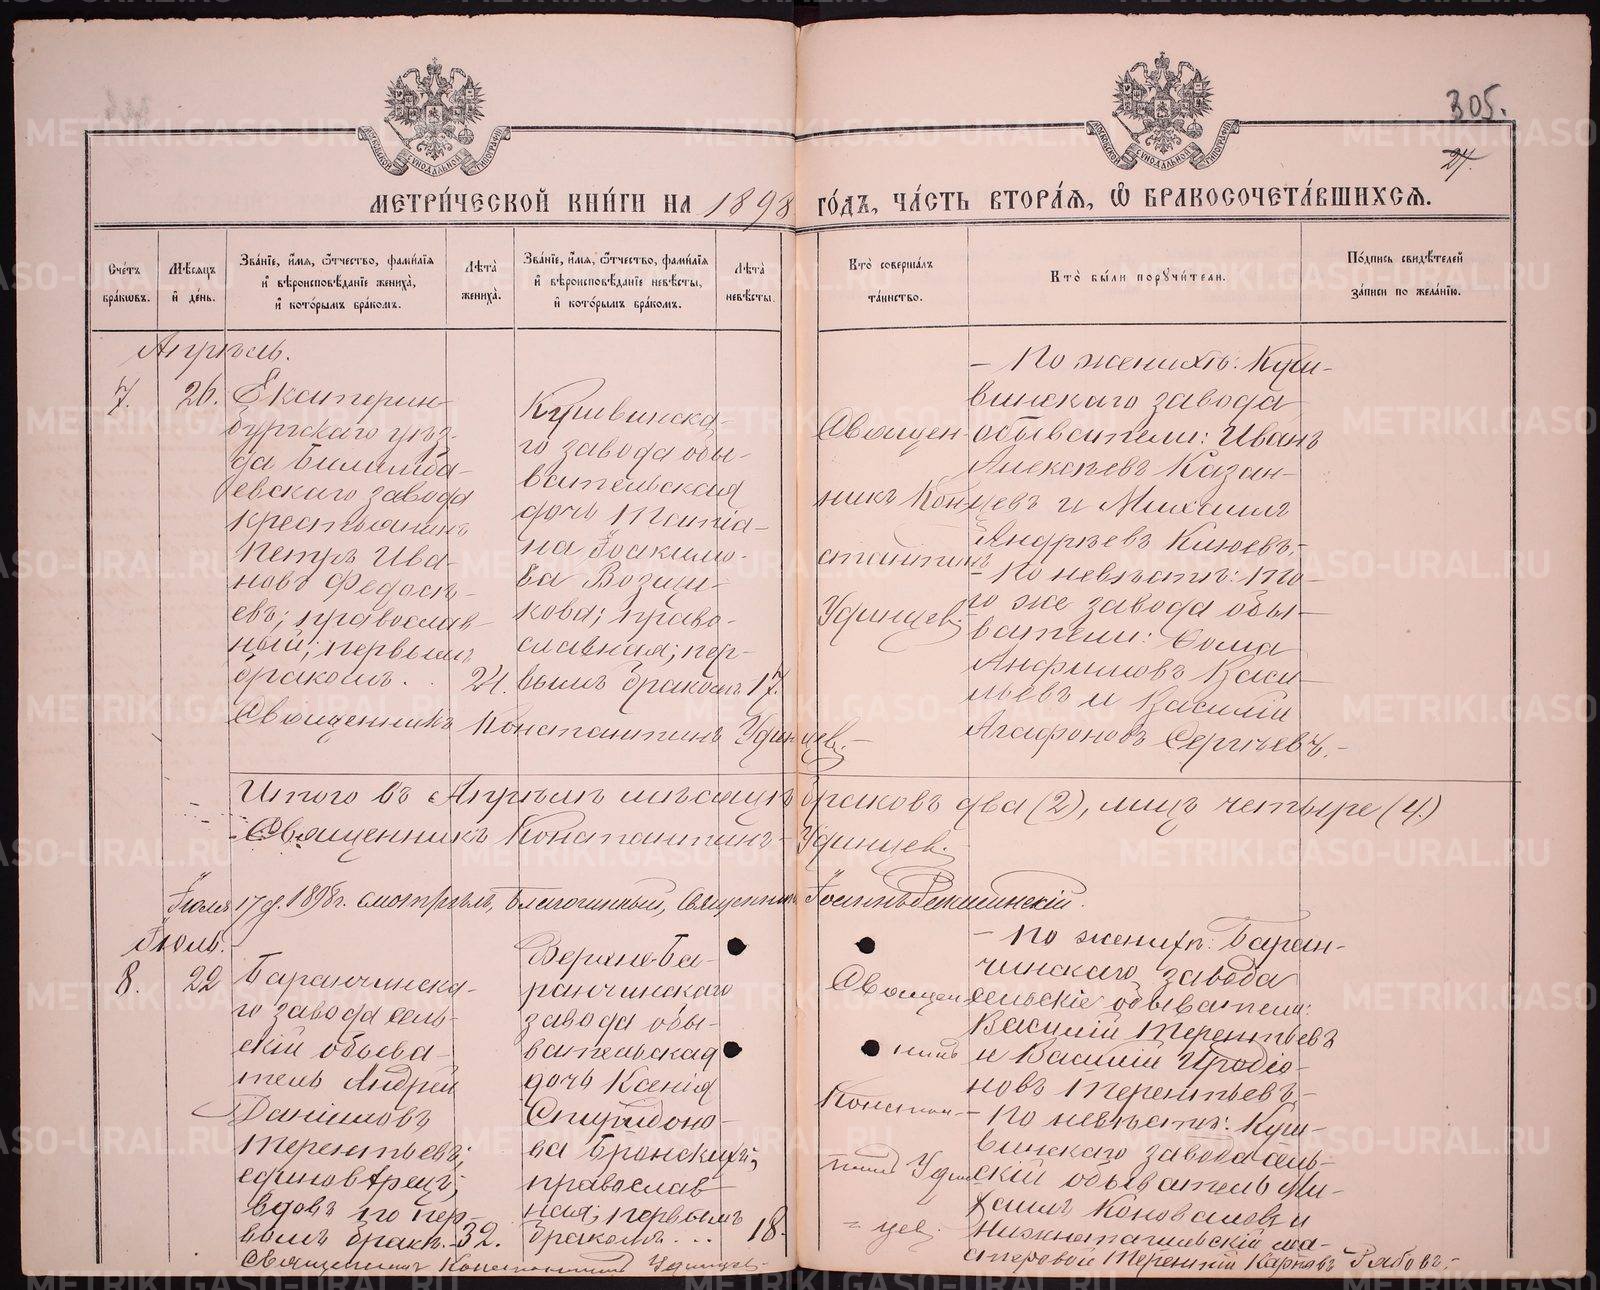 305.
24.
МЕТРИ́ЧЕСКОЙ КНИ́ГИ НА 1898 ГО́ДЪ, ЧА́СТЬ ВТОРА́Я, Ѡ БРАКОСОЧЕТА́ВШИХСЯ.
Сче́тъ бра́кѡвъ.
Мѣ́сяцъ и҆ де́нь.
Зва́нїе, и҆́мя, ѻ҆́тчество, фами́лїя и҆ вѣроисповѣ́данїе жениха̀, и҆ кото́рымъ бра́комъ.
Лѣ́та жениха̀.
Зва́нїе, и҆́мя, ѻ҆́тчество, фами́лїя и҆ вѣроисповѣ́данїе невѣ́сты, и҆ кото́рымъ бра́комъ.
Лѣ́та невѣ́сты.
Кто̀ соверша́лъ та́инство.
Кто̀ бы́ли порꙋчи́тели.
По́дпись свидѣ́телей за́писи по жела́нїю.
Апрѣль.
7.
26.
Екатерин-
бургскаго уѣз-
да Билимба-
евскаго завода
крестьянинъ
Петръ Ива-
новъ Федосѣ-
евъ; православ-
ный; первымъ
бракомъ.
24.
Кушвинска-
го завода обы-
вательская
дочь Татіа-
на Іоакимо-
ва Возчи-
кова; право-
славная; пер-
вымъ бракомъ
17.
Священ-
никъ Кон-
стантинъ
Удинцев.
- По женихѣ: Куш-
винскаго завода
обыватели: Иванъ
Алексѣевъ Казан-
цевъ и Михаилъ
Андрѣевъ Клюевъ.-
- По невѣстѣ: то-
го же завода обы-
ватели: Ѳома
Анфимовъ Васи-
льевъ и Василій
Агафоновъ Сергѣевъ.-
Священникъ Константинъ Удинцев.-
Итого въ Апрѣлѣ мѣсяцѣ браковъ два (2), лицъ четыре (4.)
- Священникъ Константинъ Удинцев.
Іюля 17 д. 1898 г. смотрѣлъ, Благочинный, Священникъ Іоаннъ
Іюль.
8.
22
Баранчинска-
го завода сель-
скій обыва-
тель Андрей
Даніиловъ
Терентьевъ;
единовѣрецъ;
вдовъ по пер-
вомъ бракѣ.
32.
Верхне-Ба-
ранчинскаго
завода обы-
вательская
дочь Ксенія
Спиридоно-
ва Бронскихъ;
православ-
ная; первымъ
бракомъ...
18.
Священ
никъ
Констан-
тинъ Удин
= цев.
- По женихѣ: Баран-
чинскаго завода
сельскіе обыватели:
Василій Терентьевъ
и Василій Иродіо-
новъ Терентьевъ.-
- По невѣстѣ: Куш-
винскаго завода сель-
скій обыватель Ми-
хаилъ Коноваловъ и
Нижнетагильскій ма-
стеровой Терентій Карповъ Рябовъ.-
Священникъ Константинъ Удинцев-
METRIKI.GASO-URAL.RU